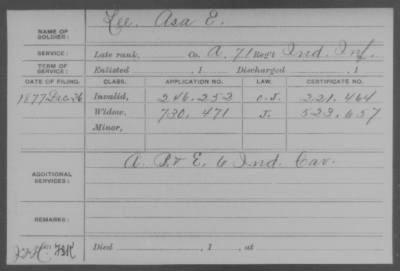 NAME OF SOLDIER: Lee, Asa E.
SERVICE: Late rank, Co. A, 71 Reg't Ind. Inf.
TERM OF SERVICE: Enlisted , 1 Discharged , 1
DATE OF FILING. CLASS. APPLICATION NO. LAW. CERTIFICATE NO.
1877 Dec. 26 Invalid, 246.253 221.464
Widow, 730.471 523.657
Minor,
ADDITIONAL SERVICES: A. & E. 6 Ind. Cav.
REMARKS:
Died , 1 , at